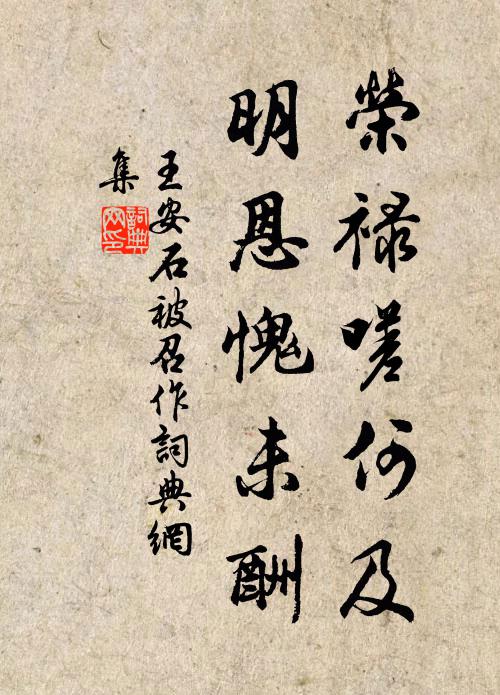 榮祿嗟何及
明恩愧未酬
王安石被召作詞典網
集
詞典
网印